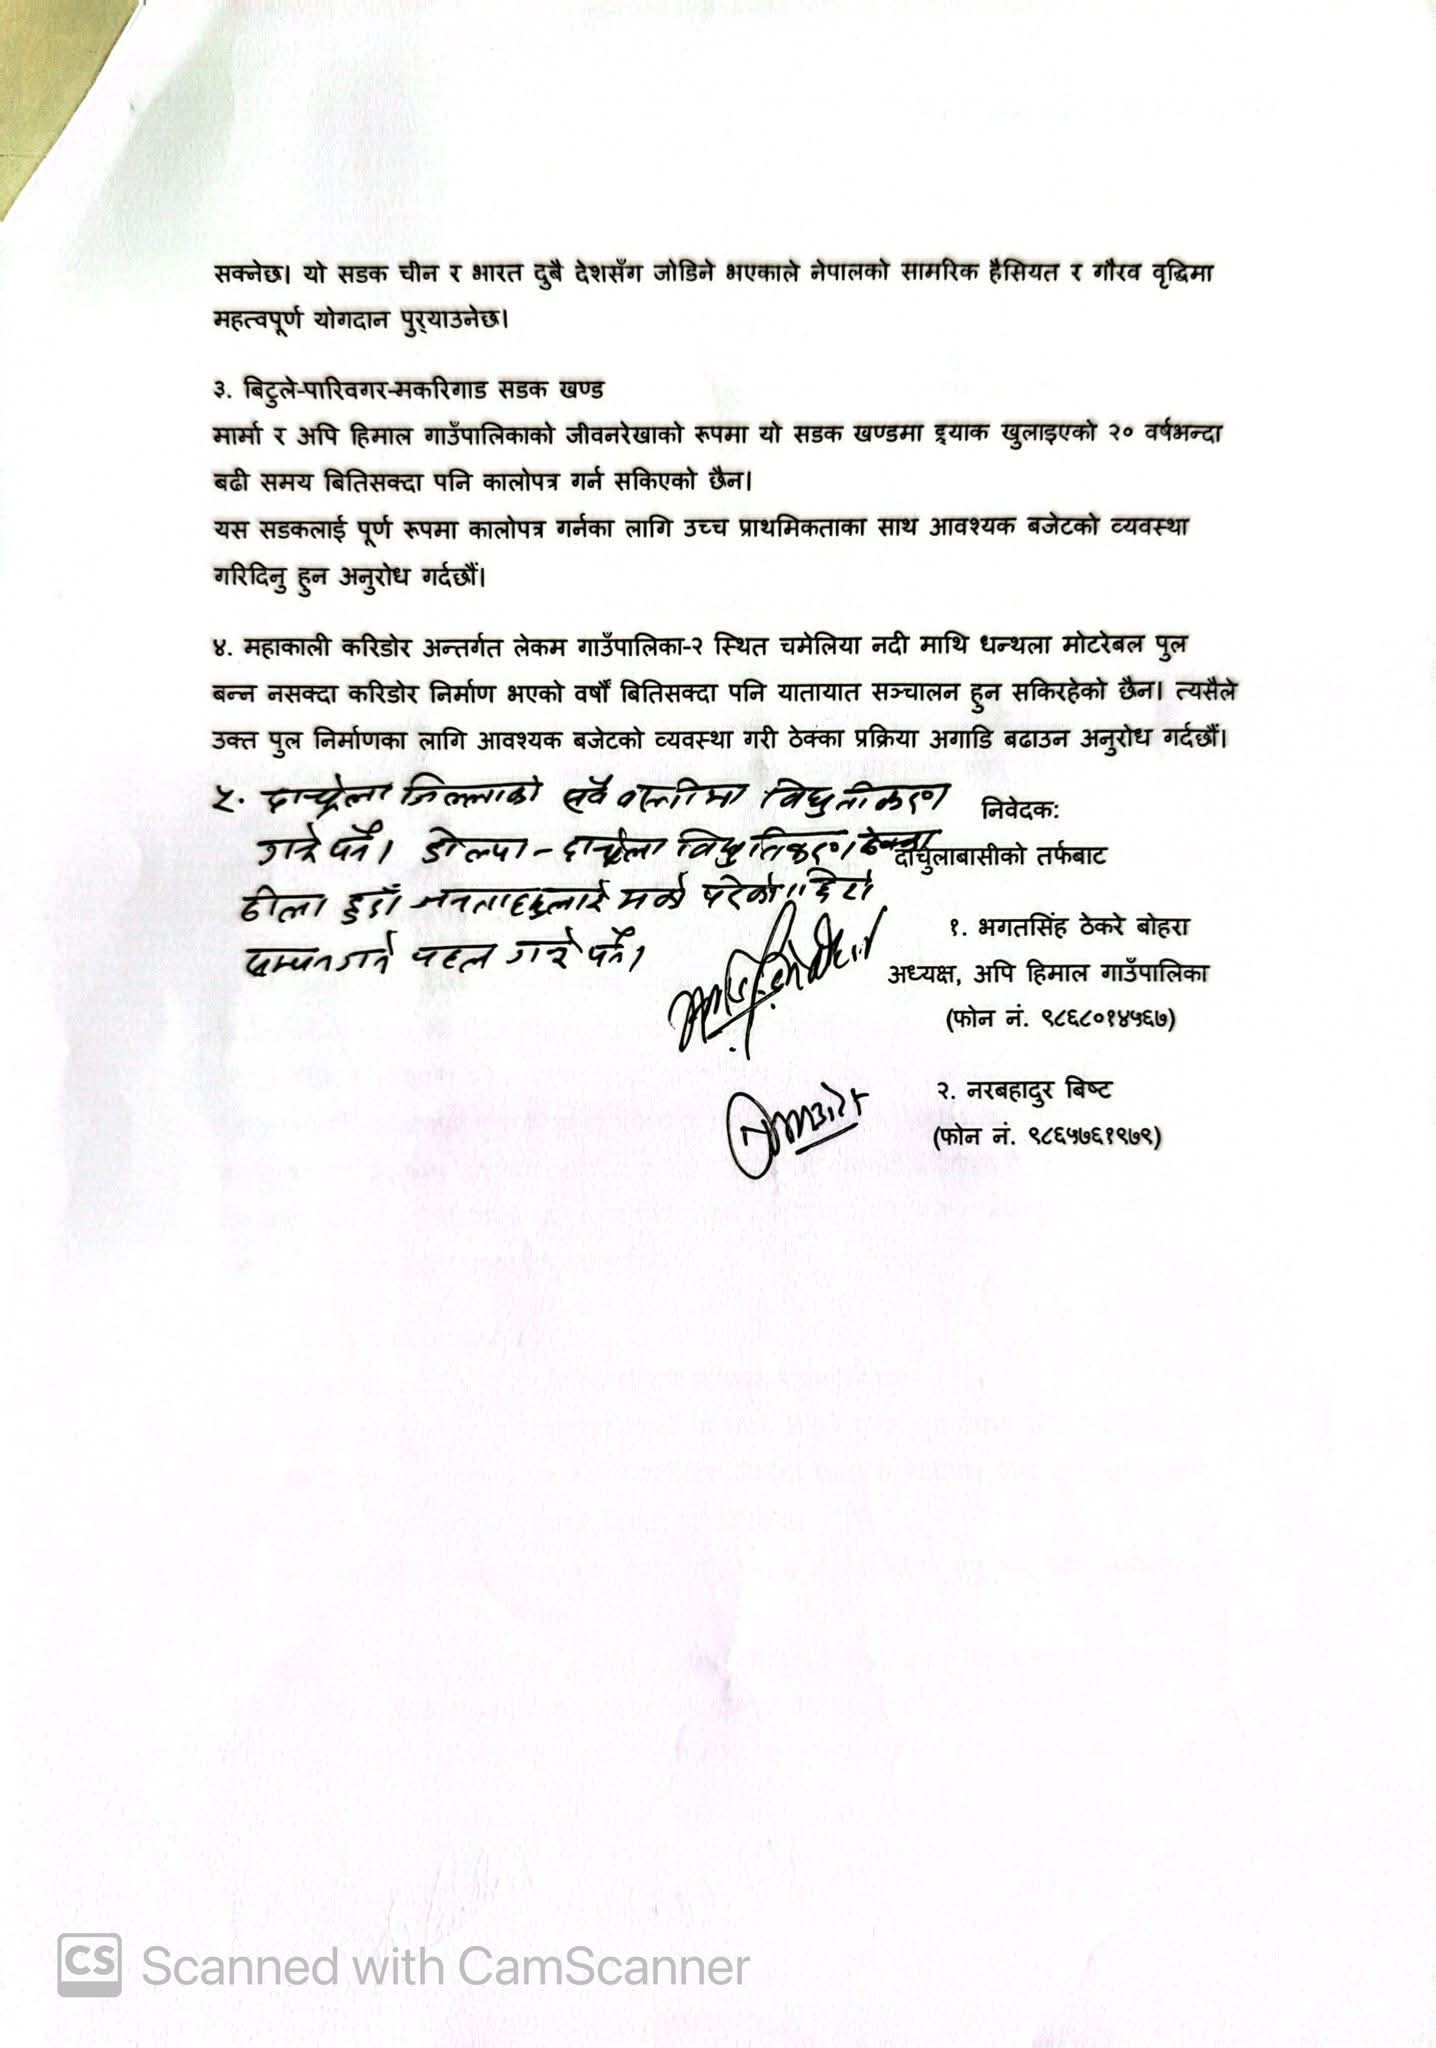 सक्नेछ। यो सडक चीन र भारत दुबै देशसँग जोडिने भएकाले नेपालको सामरिक हैसियत र गौरव वृद्धिमा
महत्वपूर्ण योगदान पुर्‍याउनेछ।
३. बिटुले-पारिवगर-मकरिगाड सडक खण्ड
मार्मा र अपि हिमाल गाउँपालिकाको जीवनरेखाको रूपमा यो सडक खण्डमा ट्र्याक खुलाइएको २० वर्षभन्दा
बढी समय बितिसक्दा पनि कालोपत्र गर्न सकिएको छैन।
यस सडकलाई पूर्ण रूपमा कालोपत्र गर्नका लागि उच्च प्राथमिकताका साथ आवश्यक बजेटको व्यवस्था
गरिदिनु हुन अनुरोध गर्दछौं।
४. महाकाली करिडोर अन्तर्गत लेकम गाउँपालिका-२ स्थित चमेलिया नदी माथि धन्थला मोटरेबल पुल
बन्न नसक्दा करिडोर निर्माण भएको वर्षौं बितिसक्दा पनि यातायात सञ्चालन हुन सकिरहेको छैन। त्यसैले
उक्त पुल निर्माणका लागि आवश्यक बजेटको व्यवस्था गरी ठेक्का प्रक्रिया अगाडि बढाउन अनुरोध गर्दछौं।
५. दार्चुला जिल्लाको सवै वस्तीमा विद्युतीकरण
गर्नु पर्ने। डोल्पा - दार्चुला विद्युतिकरण ठेक्का
ढीला हुदाँ जनताहरुलाई मर्का परेको।
गर्न पहल गर्नु पर्ने।
निवेदक:
दार्चुलाबासीको तर्फबाट
१. भगतसिंह ठेकरे बोहरा
अध्यक्ष, अपि हिमाल गाउँपालिका
(फोन नं. ९८६८०१४५६७)
२. नरबहादुर बिष्ट
(फोन नं. ९८६५७६१९७९)
CS Scanned with CamScanner